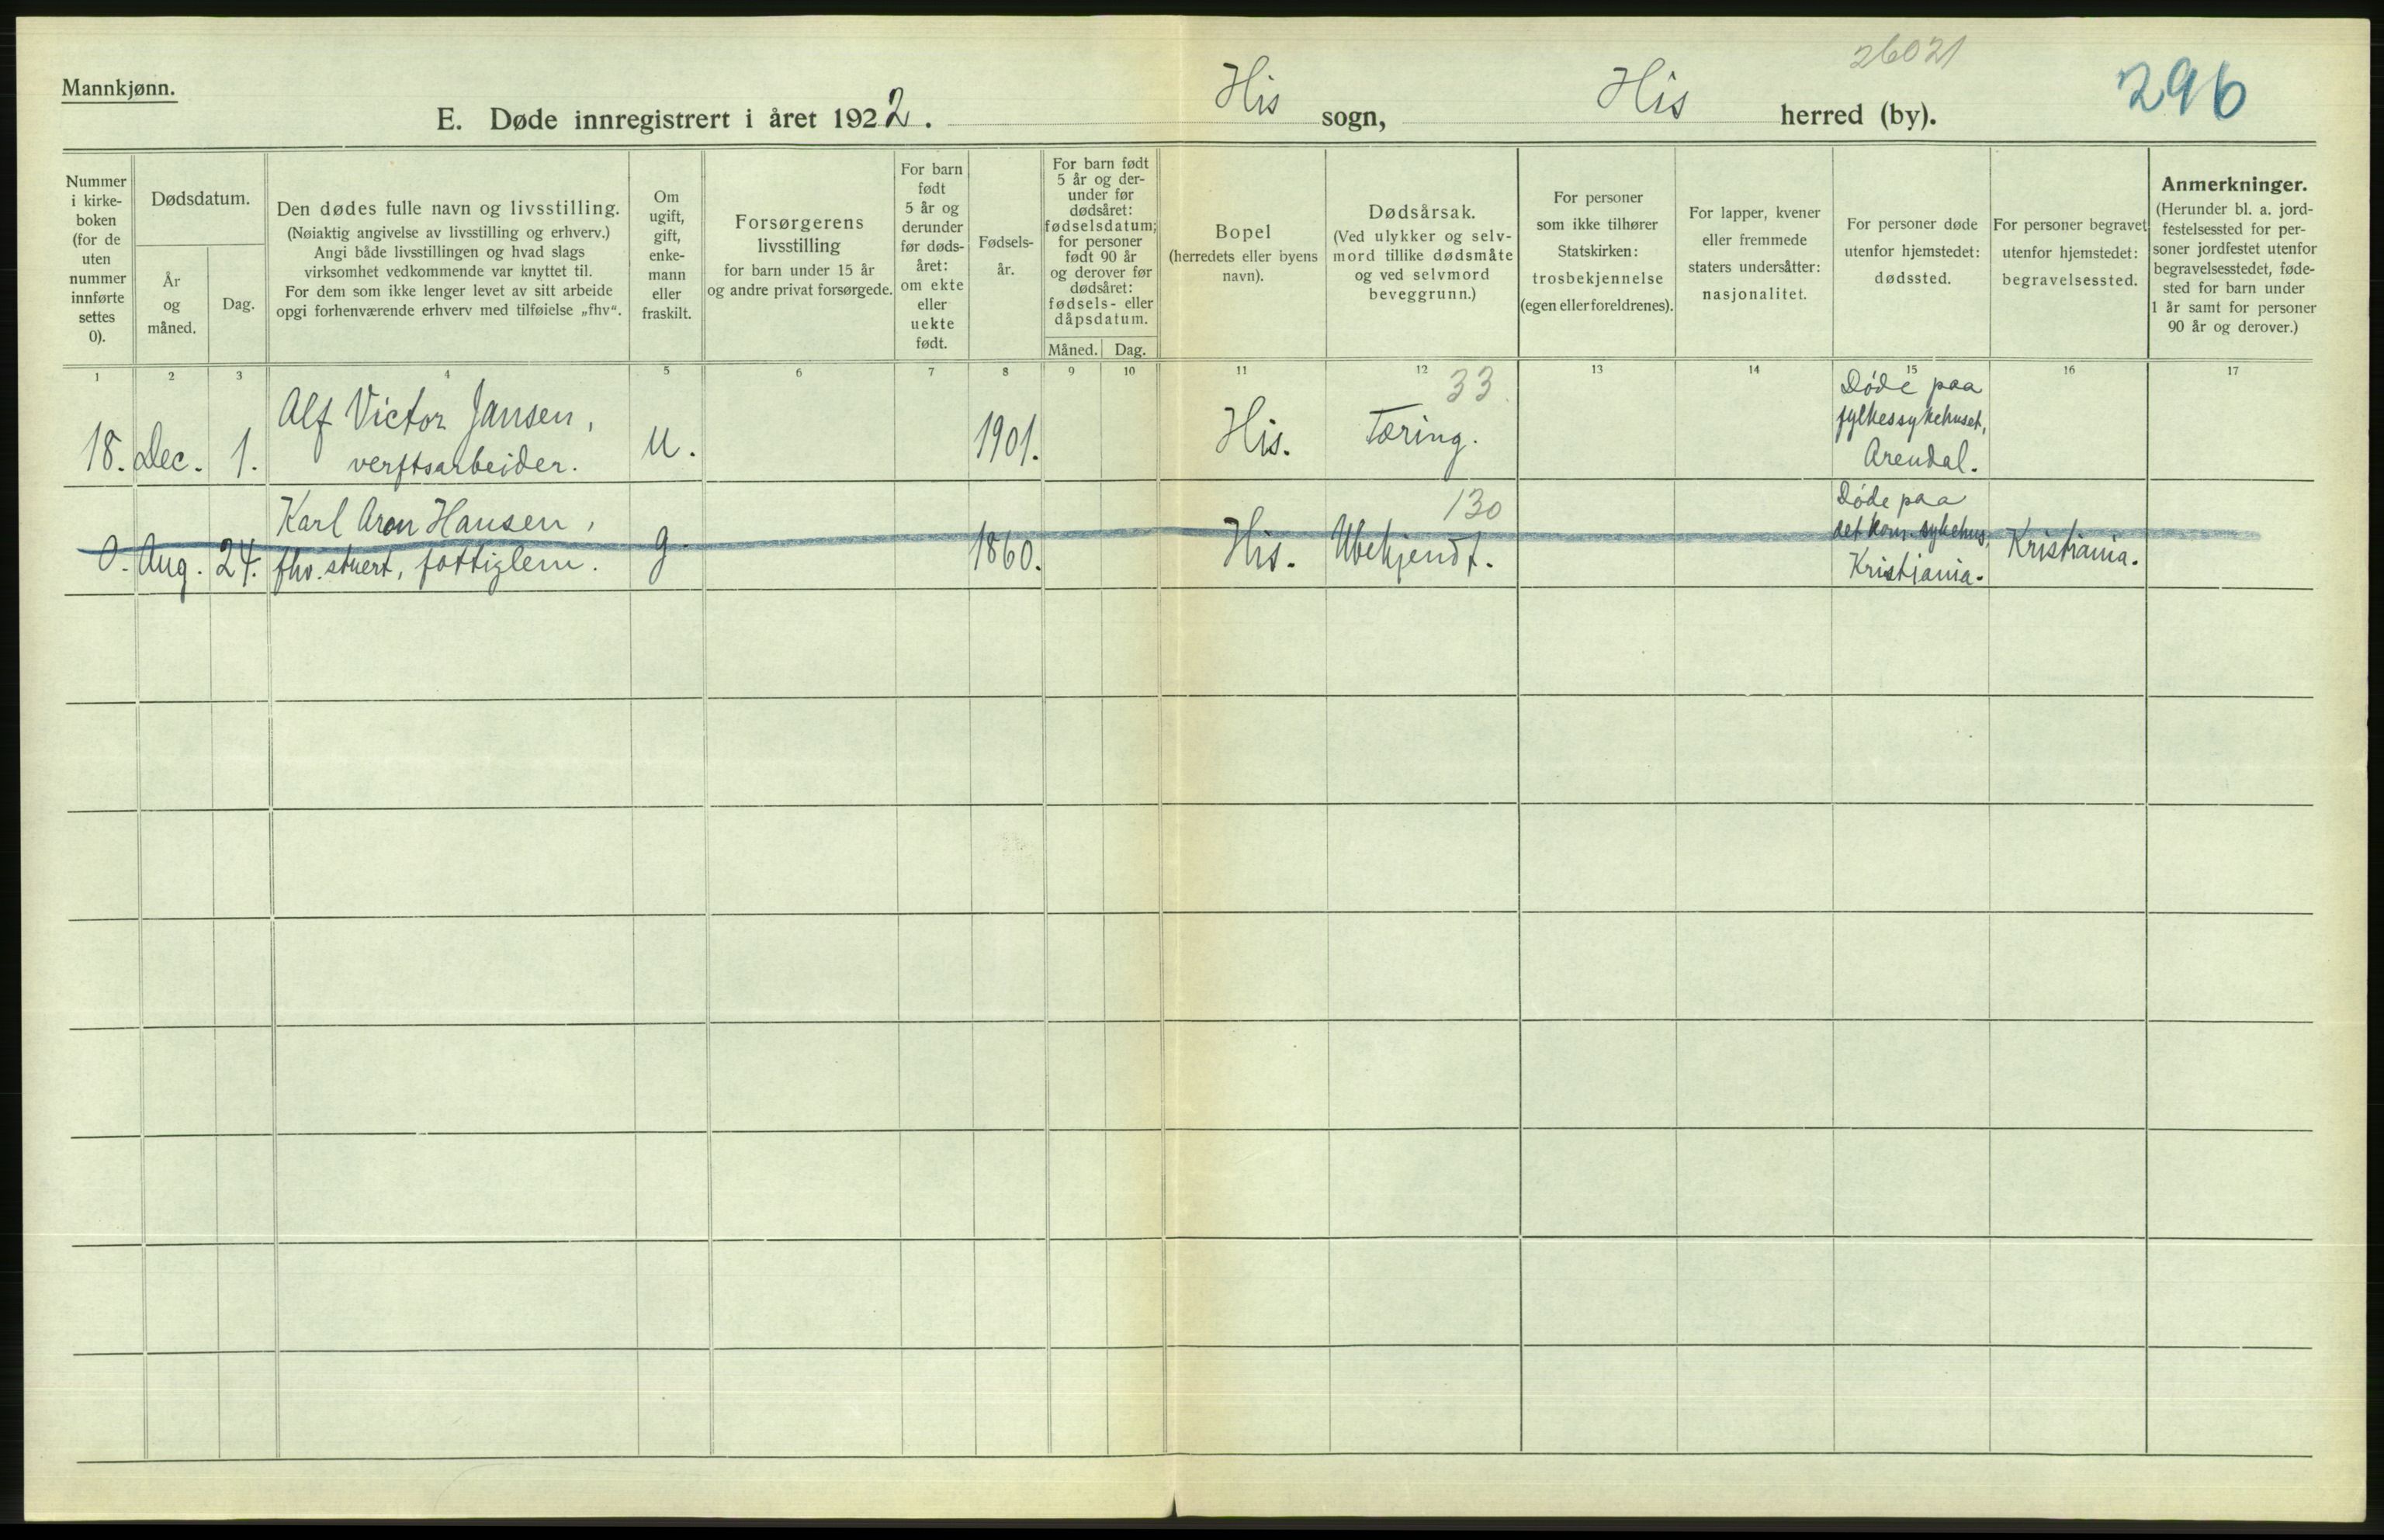 26021
296
Mannkjønn.
E. Døde innregistrert i året 1922. His sogn, His herred (by).
Nummer
i kirke-
boken
(for de
uten
nummer
innførte
settes
0).
Dødsdatum.
År
og
måned.
Dag.
Den dødes fulle navn og livsstilling.
(Nøiaktig angivelse av livsstilling og erhverv.)
Angi både livsstillingen og hvad slags
virksomhet vedkommende var knyttet til.
For dem som ikke lenger levet av sitt arbeide
opgi forhenværende erhverv med tilføielse „fhv“.
Om
ugift,
gift,
enke-
mann
eller
fraskilt.
Forsørgerens
livsstilling
for barn under 15 år
og andre privat forsørgede.
For barn
født
5 år og
derunder
før døds-
året:
om ekte
eller
uekte
født.
Fødsels-
år.
For barn født
5 år og der-
under før
dødsåret:
fødselsdatum;
for personer
født 90 år
og derover før
dødsåret:
fødsels- eller
dåpsdatum.
Måned. Dag.
Bopel
(herredets eller byens
navn).
Dødsårsak.
(Ved ulykker og selv-
mord tillike dødsmåte
og ved selvmord
beveggrunn.)
For personer
som ikke tilhører
Statskirken:
trosbekjennelse
(egen eller foreldrenes).
For lapper, kvener
eller fremmede
staters undersåtter:
nasjonalitet.
For personer døde
utenfor hjemstedet:
dødssted.
For personer begravet
utenfor hjemstedet:
begravelsessted.
Anmerkninger.
(Herunder bl. a. jord-
festelsessted for per-
soner jordfestet utenfor
begravelsesstedet, føde-
sted for barn under
1 år samt for personer
90 år og derover.)
1 2 3 4 5 6 7 8 9 10 11 12 13 14 15 16 17
18. Dec. 1.
Alf Victor Jansen,
verftsarbeider.
U.
1901.
His.
33
Tæring.
Døde paa
fylkessykehuset,
Arendal.
0. Aug. 24.
Karl Aron Hansen,
fhv. stuert, fattiglem.
g.
1860.
His.
130
Ubekjendt.
Døde paa
det kom. sykehus,
Kristiania.
Kristiania.